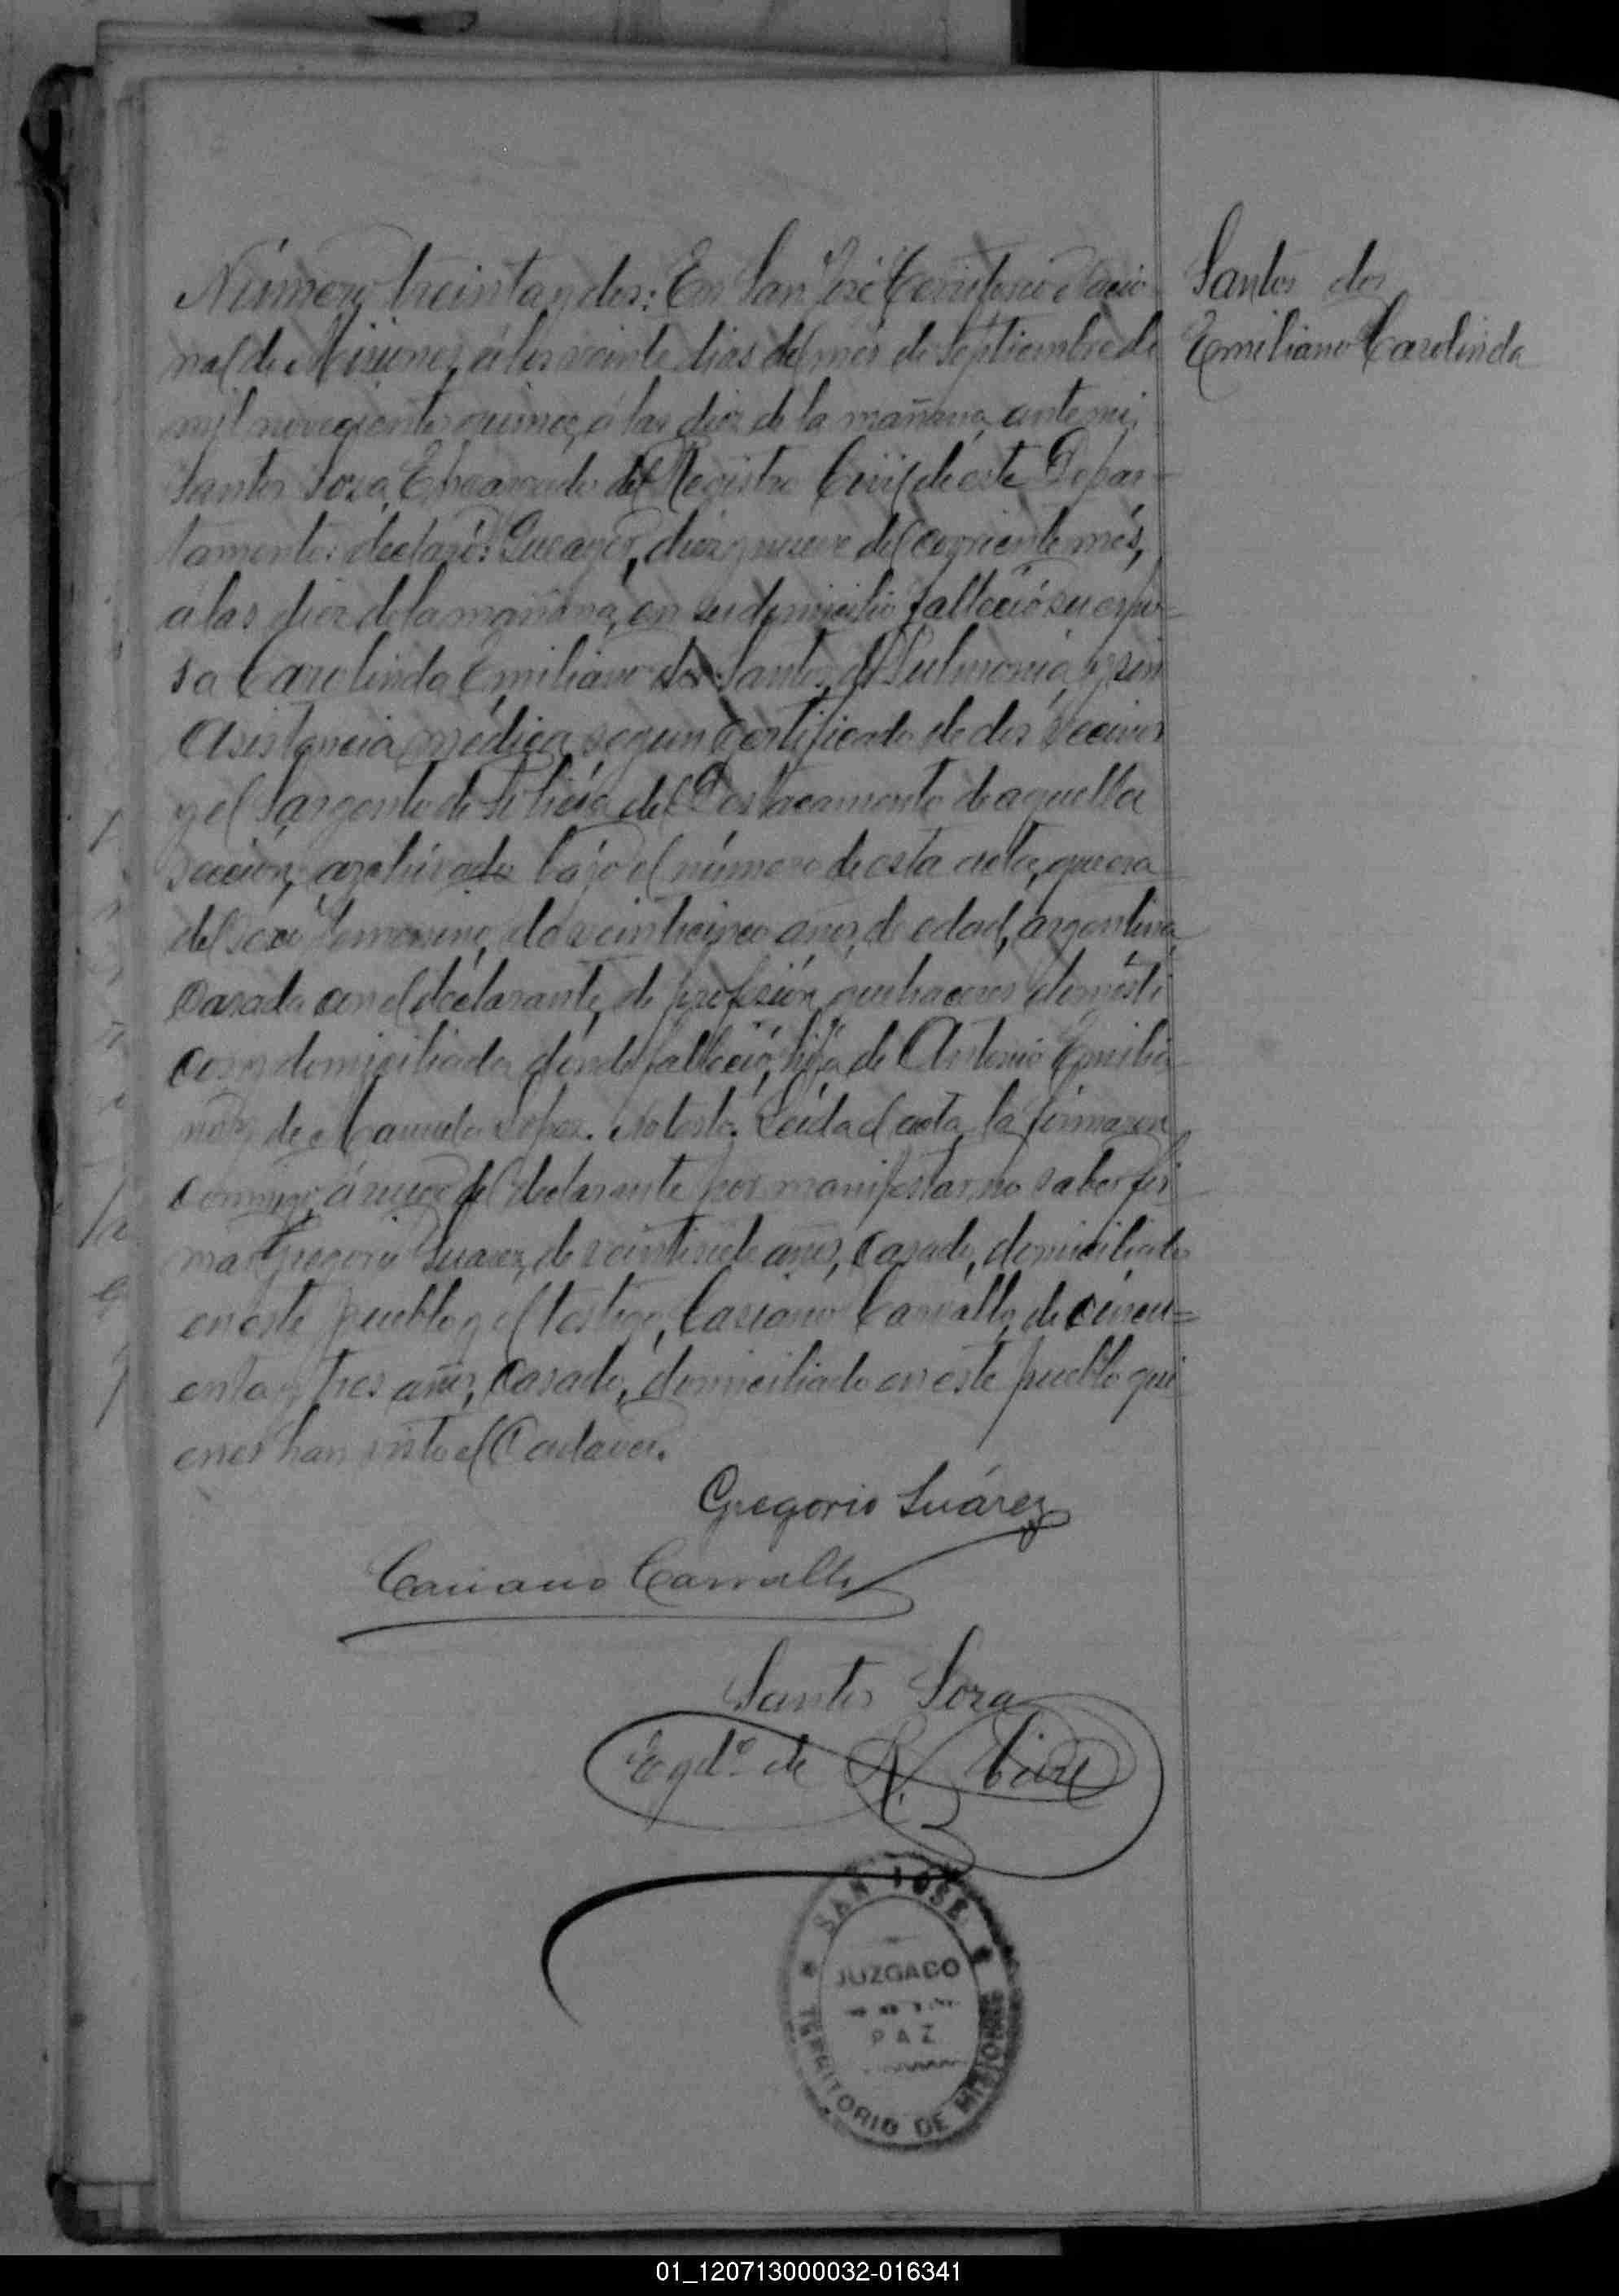 Número treinta y dos: En San José Territorio Nacio-
nal de Misiones, á los veinte dias del més de Septiembre de
mil novecientos quince, á las diez de la mañana, ante mi,
Santos Soza, Encargado del Registro Civil de este Depar-
tamento: declaró: Que ayer, diez y nueve del corriente més,
a las diez de la mañana, en su domicilio falleció su espo-
sa Carolinda Emiliano dos Santos, de Pulmonía, y sin
Asistencia médica, segun certificado de dos Vecinos
y el Sargento de Policía del Destacamento de aquella
sección, archivado bajo el número de esta acta, que era
del sexo femenino, de veinticinco años, de edad, argentina
Casada con el declarante, de profesión quehaceres domésti
cos, domiciliada dónde falleció, hija de Antonio Emilia-
no y de Manuela Lopez. No testó. Leída el acta, la firmaron
conmigo, á ruego del declarante por manifestar no saber fir
mar Gregorio Suarez, de veintisiete años, Casado, domiciliado
en este pueblo y el testigo, Casiano Carvallo, de cincu=
enta y tres años, Casado, domiciliado en este pueblo qui
enes han visto el Cadaver.
Gregorio Suárez
Casiano Carvallo
Santos Soza
Egdo de R. Civil
SAN JOSE
JUZGADO
PAZ
TERRITORIO DE MISIONES
Santos dos
Emiliano Carolinda
01_120713000032-016341